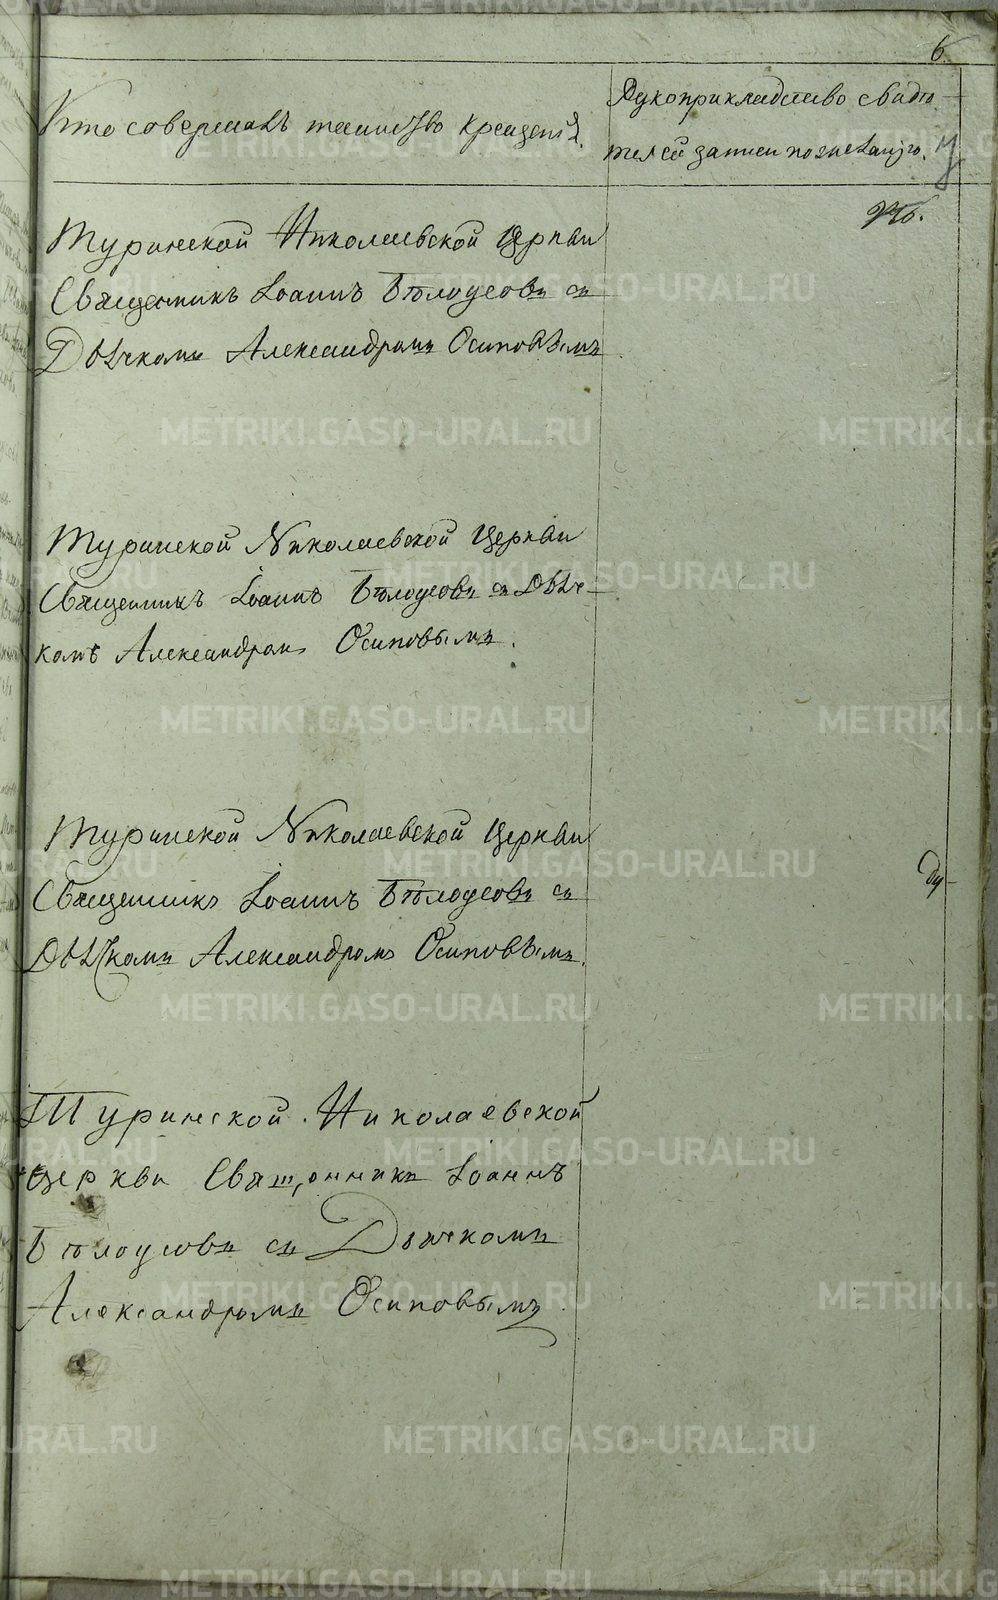 6
Кто совершалъ таинство крещенія.
Рукоприкладство свидѣ-
телей записи по желанію.
Туринской Николаевской Церкви
Священникъ Іоаннъ Бѣлоусовъ съ
Дьячкомъ Александромъ Осиповымъ.
Туринской Николаевской Церкви
Священникъ Іоаннъ Бѣлоусовъ съ Дьяч-
комъ Александромъ Осиповымъ.
Туринской Николаевской Церкви
Священникъ Іоаннъ Бѣлоусовъ съ
Дьячкомъ Александромъ Осиповымъ.
ду-
Туринской Николаевской
церкви Священникъ Іоаннъ
Бѣлоусовъ съ Дьячкомъ
Александромъ Осиповымъ.
METRIKI.GASO-URAL.RU